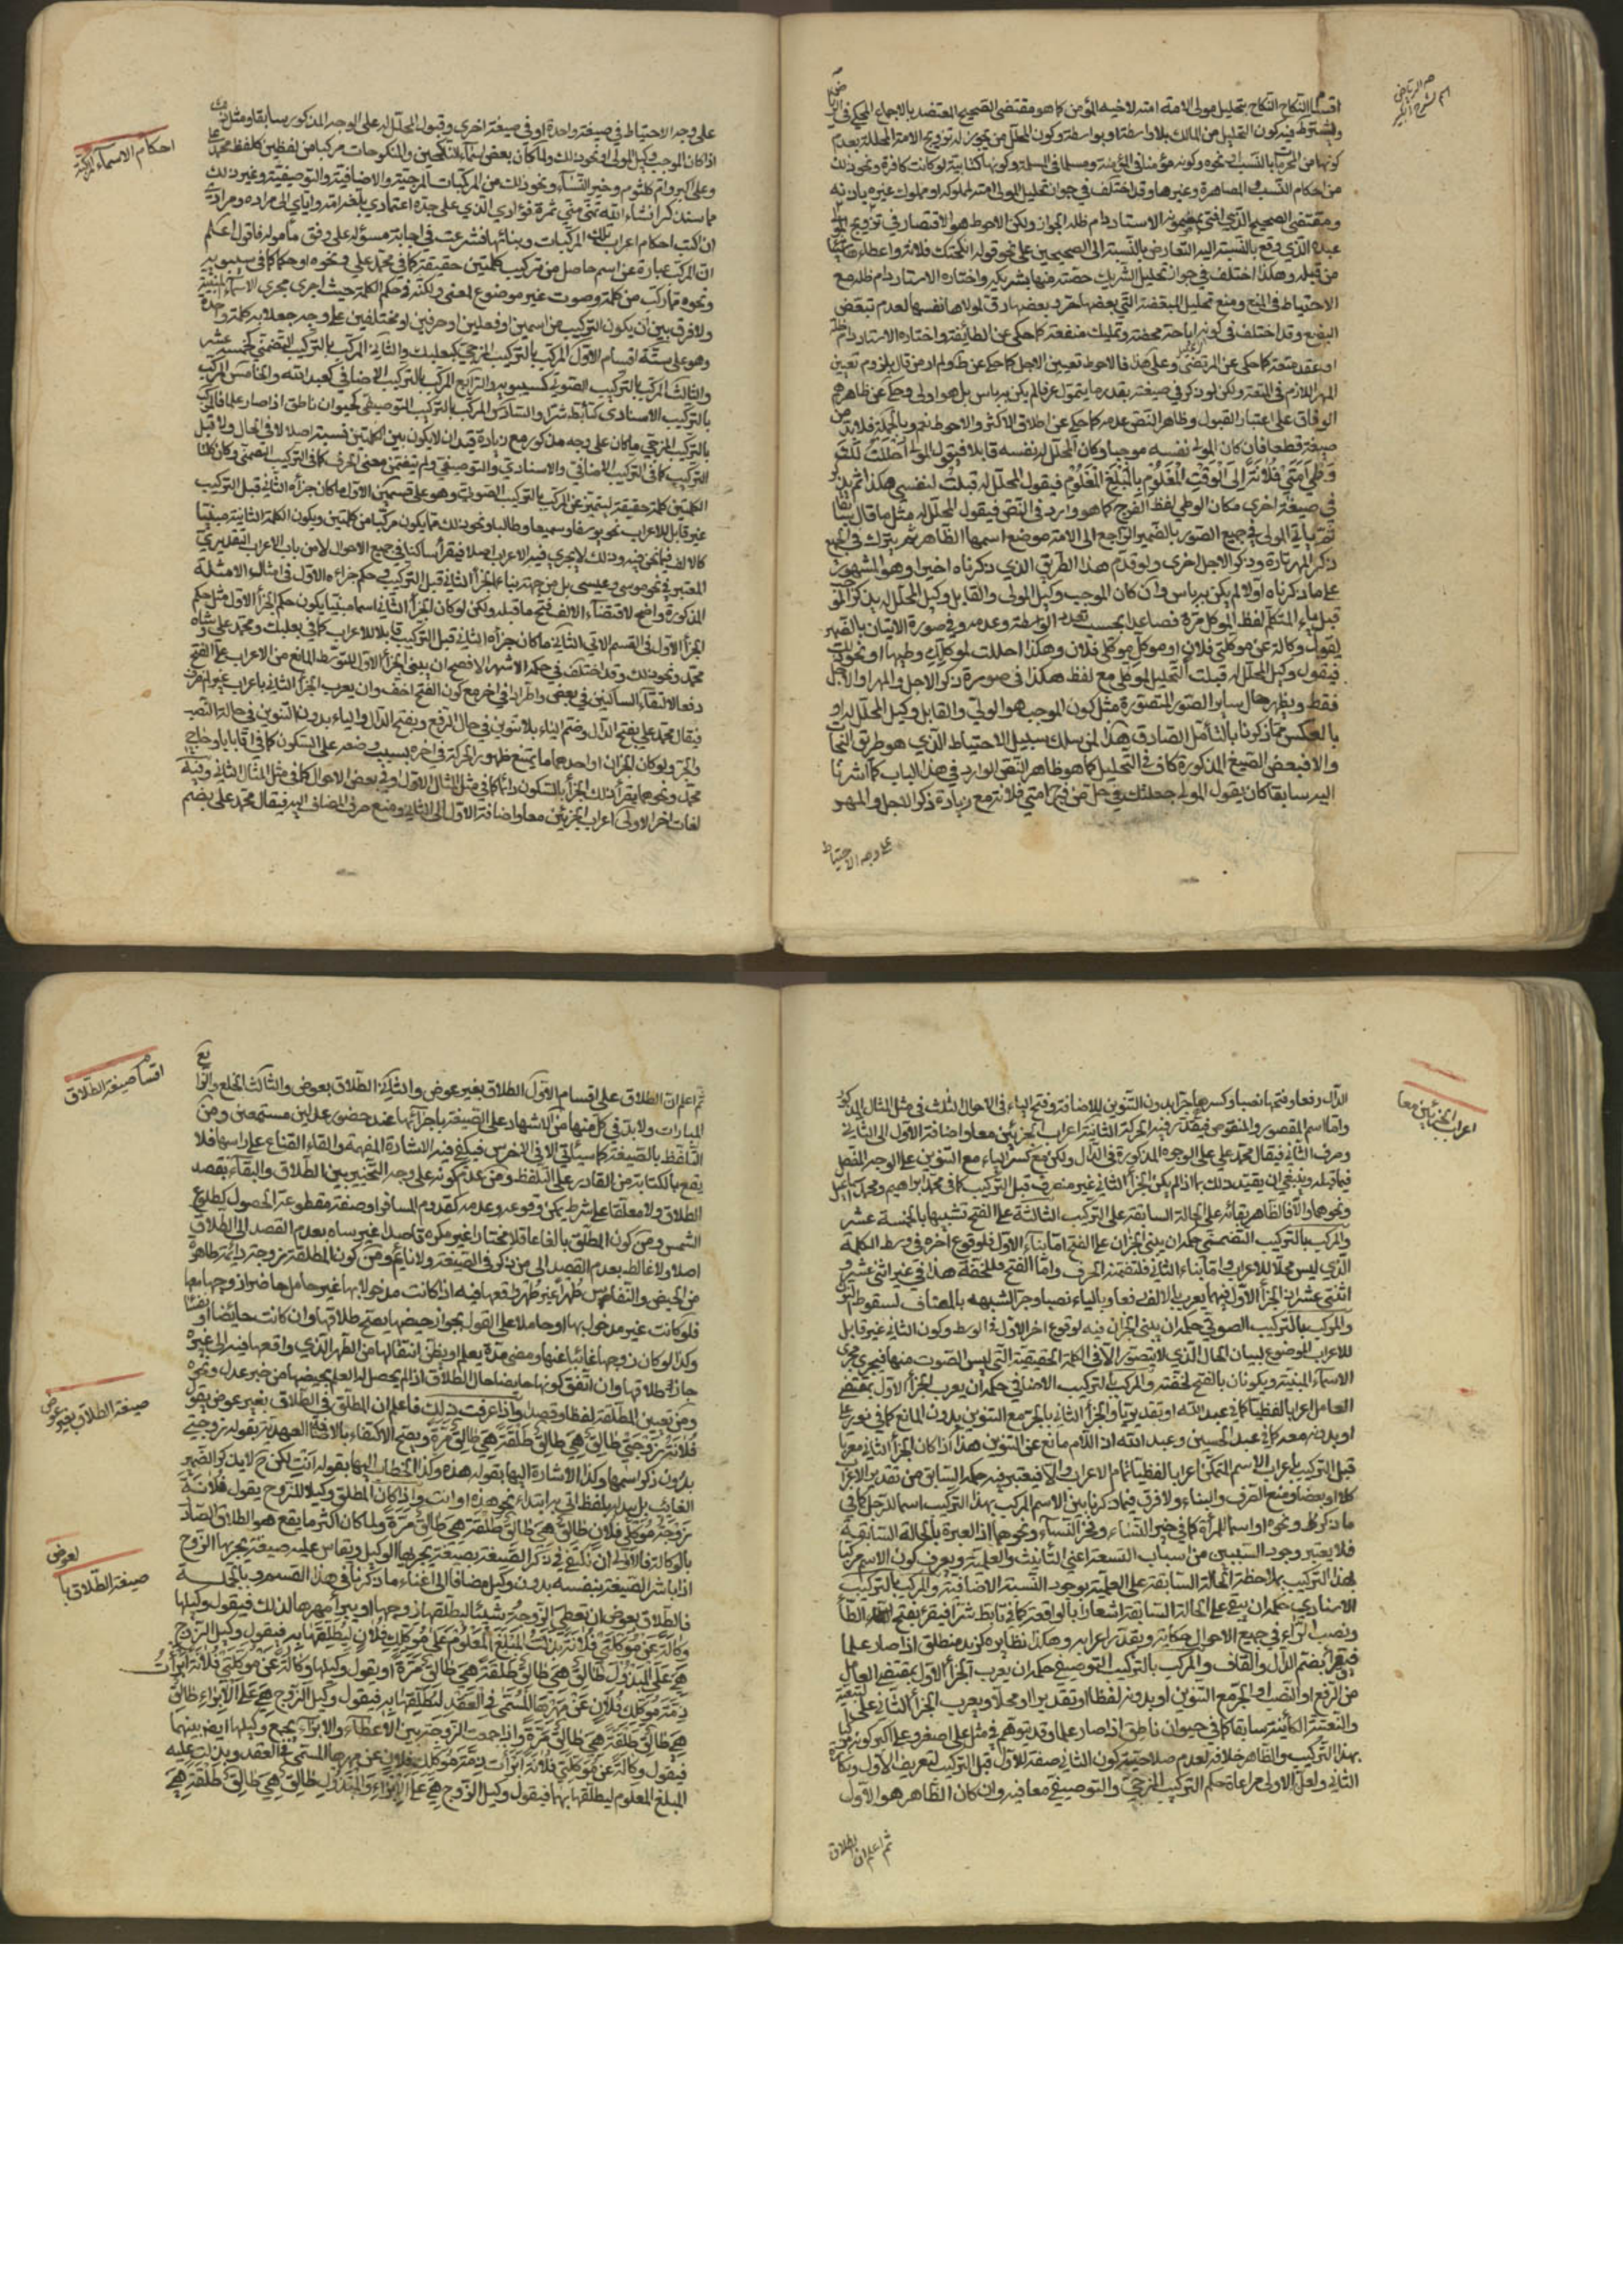 اقسام النكاح النكاح بتحليل مولى الامة امته لاخيه المؤمن كما هو مقتضى الصحيح المعتضد بالاجماع المحكى فى
ويشترط فيه كون التحليل من المالك بلا واسطة او بواسطة وكون المحلل من يجوز له تزويج الامة المحللة بعدم
كونها من المحرمات بالنسب او نحوه وكونه مؤمنا فى المؤمنة ومسلما فى المسلمة وكونها كتابية لو كانت كافرة ونحو ذلك
من احكام النسب والمصاهرة وغيرها وقد اختلف فى جواز تحليل المولى امته لمملوكه او مملوك غيره باذنه
ومقتضى الصحيح الذي افتى بمضمونه الاستاد دام ظله الجواز ولكن الاحوط هو الاقتصار فى تزويج
عبده الذي وقع بالنسبة اليه التعارض بالنسبة الى الصحيحين على نحو قوله انكحتك فلانة واعطاء
من قبله وهكذا اختلف فى جواز تحليل الشريك حصته منها بشريكه واختاره الاستاد دام ظله مع
الاحتياط فى المنع ومنع تحليل المبعضة التي بعضها حر وبعضها رق لمولاها نفسها لعدم تبعض
البضع وقد اختلف فى كونه اباحة محضة وتمليك منفعة كما حكى عن الطائفة واختاره الاستاد دام ظله
او عقد متعة كما حكى عن المرتضى وعلى هذا فالاحوط تعيين الاجل كما حكى عن ط ولم ار من قال بلزوم تعيين
المهر اللازم فى المتعة ولكن لو ذكر فى صيغته بقدر ما يتمول عرفا لم يكن به باس بل هو اولى وحكى عن ظاهرهم
الوفاق على اعتبار القبول وظاهر النص عدمه كما حكى عن اطلاق الاكثر والاحوط نعم وبالجملة فلابد من
صيغة قطعا فان كان المولى نفسه موجبا وكان المحلل له نفسه قابلا فيقول المولى احللت لك
وطى امتى فلانة الى الوقت المعلوم بالمبلغ المعلوم فيقول المحلل له قبلت لنفسي هكذا ثم
فى صيغة اخرى مكان الوطى لفظ الفرج كما هو وارد فى النص فيقول المحلل له مثل ما قال سابقا
ثم ياتى المولى فى جميع الصور بالضمير الراجع الى الامة موضع اسمها الظاهر ثم يترك فى الجميع
ذكر المهر تارة وذكر الاجل اخرى ولو قدم هذا الطريق الذي ذكرناه اخيرا وهو المشهور
على ما ذكرناه اولا لم يكن به باس وان كان الموجب وكيل المولى والقابل وكيل المحلل له يذكر
قبل ياء المتكلم لفظ الموكل مرة فصاعدا بحسب تعدد الواسطة وعدمه وفى صورة الاتيان بالضمير
يقول وكالة عن موكلتي فلان او موكل موكلي فلان وهكذا احللت لموكلك وطيها او نحو ذلك
فيقول وكيل المحلل له قبلت التحليل لموكلي مع لفظ هكذا فى صورة ذكر الاجل والمهر او الاجل
فقط ويظهر حال سائر الصور المتصورة مثل كون الموجب هو الولي والقابل وكيل المحلل له او
بالعكس مما ذكرنا بالتأمل الصادق هذا لمن سلك سبيل الاحتياط الذي هو طريق النجاة
والا فبعض الصيغ المذكورة كاف فى التحليل كما هو ظاهر النص الوارد فى هذا الباب كما اشرنا
اليه سابقا كان يقول المولى جعلتك فى حل من فرج امتي فلانة مع زيادة ذكر الاجل والمهر
على وجه الاحتياط
احكام الاسماء المركبة
على وجه الاحتياط فى صيغة واحدة او فى صيغة اخرى وقبول المحلل له على الوجه المذكور سابقا ومثل
اذا كان الموجب وكيل المولى او نحو ذلك ولما كان بعض اسماء الناكحين والمنكوحات مركبا من لفظين كلفظ محمد
وعلى اكبر وام كلثوم وخير النساء ونحو ذلك من المركبات المزجية والاضافية والتوصيفية وغير ذلك
مما سنذكر انشاء الله تمنى مني ثمرة فؤادي الذي على جده اعتمادي بلغه الله واياي الى مراده ومرادي
ان اكتب احكام اعراب تلك المركبات وبنائها فشرعت فى اجابة مسؤله على وفق مأموله فاقول اعلم
ان المركب عبارة عن اسم حاصل من تركيب كلمتين حقيقة كما فى محمد علي ونحوه او حكما كما فى سيبويه
ونحوه مما ركب من كلمة وصوت غير موضوع لمعنى ولكنه فى حكم الكلمة حيث اجرى مجرى الاسماء المبنية
ولا فرق بين ان يكون التركيب من اسمين او فعلين او حرفين او مختلفين على وجه جعلا به كلمة واحدة
وهو على ستة اقسام الاول المركب بالتركيب المزجي كبعلبك والثاني المركب بالتركيب التضمني كخمسة عشر
والثالث المركب بالتركيب الصوتي كسيبويه والرابع المركب بالتركيب الاضافي كعبد الله والخامس المركب
بالتركيب الاسنادي كتأبط شرا والسادس المركب بالتركيب التوصيفي كحيوان ناطق اذا صار علما فالمركب
بالتركيب المزجي ما كان على وجه مذكور مع زيادة قيد ان لا يكون بين الكلمتين نسبة اصلا لا فى الحال ولا قبل
التركيب كما فى التركيب الاضافي والاسنادي والتوصيفي ولم يتضمن معنى الحرف كما فى التركيب التضمني وكان كلتا
الكلمتين كلمة حقيقة ليتميز عن المركب بالتركيب الصوتي وهو على قسمين الاول ما كان جزأه الثاني قبل التركيب
غير قابل للاعراب نحو يوسفا وسميعا وطالبا ونحو ذلك مما يكون مركبا من كلمتين ويكون الكلمة الثانية مبنيا
كالالف فيما نحن فيه وذلك لا يجري فيه الاعراب اصلا فيقرأ ساكنا فى جميع الاحوال لا من باب الاعراب التقديري
المعتبر فى نحو موسى وعيسى بل من جهة بناء الجزأ الثاني قبل التركيب وحكم جزاءه الاول فى امثال الامثلة
المذكورة واضح لاقتضاء الالف فتح ما قبله ولكن لو كان الجزأ الثاني اسما مبنيا يكون حكم الجزأ الاول مثل حكم
الجزأ الاول فى القسم الاتي الثاني ما كان جزأه الثاني قبل التركيب قابلا للاعراب كما فى بعلبك ومحمد علي وشاه
محمد ونحو ذلك وقد اختلف فى حكمه الاشهر الافصح ان يبنى الجزأ الاول للتوسط المانع من الاعراب على الفتح
دفعا لالتقاء الساكنين فى بعض واطرادا فى اخر مع كون الفتح اخف وان يعرب الجزأ الثاني باعراب غير المنصرف
فيقال محمد علي بفتح الدال وضم الياء بلا تنوين فى حال الرفع وبفتح الدال والياء بدون التنوين فى حالة النصب
والجر ولو كان الجزان او احدهما ما يمتنع ظهور الحركة فى اخره بسبب وضعه على السكون كما فى اقا بابا وحاجي
محمد ونحوهما يقرأ ذلك الجزأ بالسكون دائما كما فى مثل المثال الاول او فى بعض الاحوال كما فى مثل المثال الثاني وفيه
لغات اخر الاولى اعراب الجزئين معا واضافة الاول الى الثاني ومنع صرف المضاف اليه فيقال محمد علي بضم
اعراب الجزئين معا
الدال رفعا وفتحها نصبا وكسرها جرا بدون التنوين للاضافة وفتح الياء فى الاحوال الثلث فى مثل المثال المذكور
واما اسم المقصور والمنقوص فيقدر فيه الحركة الثانية اعراب الجزئين معا واضافة الاول الى الثاني
وصرف الثاني فيقال محمد علي على الوجوه المذكورة فى الدال ولكن مع كسر الياء مع التنوين على الوجه المفصل
فيما قبله وينبغي ان يقيد ذلك بما اذا لم يكن الجزأ الثاني غير منصرف قبل التركيب كما فى محمد ابراهيم ومحمد اسماعيل
ونحوهما والا فالظاهر بقائه على الحالة السابقة على التركيب الثالثة على الفتح تشبيها بالخمسة عشر
والمركب بالتركيب التضمني حكمه ان يبنى الجزان على الفتح اما بناء الاول فلوقوع اخره فى وسط الكلمة
الذي ليس محلا للاعراب واما بناء الثاني فلتضمنه الحرف واما الفتح فللخفة هذا فى غير اثنى عشر و
اثنتى عشر فان الجزأ الاول فيهما يعرب بالالف رفعا وبالياء نصبا وجرا لشبهه بالمضاف لسقوط النون
والمركب بالتركيب الصوتي حكمه ان يبنى الجزان فيه لوقوع اخر الاول فى الوسط وكون الثاني غير قابل
للاعراب الموضوع لبيان الحال الذي لا يتصور الا فى الكلمة الحقيقية التي ليس الصوت منها فيجرى مجرى
الاسماء المبنية ويكونان بالفتح لخفته والمركب بالتركيب الاضافي حكمه ان يعرب الجزأ الاول بمقتضى
العامل اعرابا لفظيا كما فى عبد الله او تقديريا والجزأ الثاني بالجر مع التنوين بدون المانع كما فى نور علي
او بدونه معه كما فى عبد الحسين وعبد الله اذ اللام مانع عن التنوين هذا اذا كان الجزأ الثاني معربا
قبل التركيب باعراب الاسم المتمكن اعرابا لفظيا تمام الاعراب والا فيعتبر فيه حكمه السابق من تقدير الاعراب
كلا او بعضا ومنع الصرف والبناء ولا فرق فيما ذكرنا بين الاسم المركب بهذا التركيب اسما لرجل كما فى
ما ذكر ونحوه او اسما لمرأة كما فى خير النساء وفخر النساء ونحوهما اذ العبرة بالحالة السابقة
فلا يعتبر وجود السببين من اسباب التسعة اعني التأنيث والعلمية ويعرف كون الاسم مركبا
بهذا التركيب بملاحظة الحالة السابقة على العلمية بوجود النسبة الاضافية والمركب بالتركيب
الاسنادي حكمه ان يبقى على الحالة السابقة اشعارا بالواقعة كما فى تأبط شرا فيقرء بفتح الطأ
ونصب الراء فى جميع الاحوال حكاية ويقدر اعرابه وهكذا نظايره كزيد منطلق اذا صار علما
فيقرأ بضم الدال والقاف والمركب بالتركيب التوصيفي حكمه ان يعرب الجزأ الاول بمقتضى العامل
من الرفع او النصب او الجر مع التنوين او بدونه لفظا او تقديرا او محلا ويعرب الجزأ الثاني على
والنعتية الكائنة سابقا كما فى حيوان ناطق اذا صار علما وقد يتوهم فى مثل على اصغر وعلى اكبر كونه مركبا
بهذا التركيب والظاهر خلافه لعدم صلاحية كون الثاني صفة للاول قبل التركيب لتعريف الاول ونكارة
الثاني ولعل الاولى مراعاة حكم التركيب المزجي والتوصيفي معا فيه وان كان الظاهر هو الاول
ثم اعلم ان الطلاق
اقسام صيغة الطلاق
ثم اعلم ان الطلاق على اقسام الاول الطلاق بغير عوض والثاني الطلاق بعوض والثالث الخلع والرابع
المبارات ولابد فى كل منها من الاشهاد على الصيغة باجزائها عند حضور عدلين مستمعين ومن
التلفظ بالصيغة كما سيأتي الا فى الاخرس فيكفي فيه الاشارة المفهمة والقاء القناع على راسها فلا
يقع بالكتابة من القادر على التلفظ ومن عدم كونه على وجه التخيير بين الطلاق والبقاء بقصد
الطلاق ولا معلقا على شرط يمكن وقوعه وعدمه كقدوم المسافر او صفة مقطوعة الحصول كطلوع
الشمس ومن كون المطلق بالغا عاقلا مختارا غير مكره قاصدا غير ساه بعدم القصد الى الطلاق
اصلا ولا غالط بعدم القصد الى من ذكر فى الصيغة ولا نائم ومن كون المطلقة زوجة دائمة طاهرة
من الحيض والنفاس طهرا غير طهر واقعها فيه اذا كانت مدخولا بها غير حامل حاضرا زوجها معها
فلو كانت غير مدخول بها او حاملا على القول بجواز حيضها يصح طلاقها وان كانت حائضا او نفساء
وكذا لو كان زوجها غائبا عنها ومضى مدة يعلم او يظن انتقالها من الطهر الذي واقعها فيه الى غيره
جاز طلاقها وان اتفق كونها حائضا حال الطلاق اذا لم يحصل له العلم بحيضها من خبر عدل ونحوه
صيغة الطلاق بغير عوض
ومن تعيين المطلقة لفظا وقصدا واذا عرفت ذلك فاعلم ان المطلق فى الطلاق بغير عوض يقول
فلانة زوجتي طالق هي طالق طلقة هي طالق مرة ويصح الاكتفاء بالاضافة العهدية بقوله زوجتي
بدون ذكر اسمها وكذا الاشارة اليها بقوله هذه وكذا الخطاب اليها بقوله انت لكن ح لا يذكر الضمير
الغائب بل يبدل بلفظ اتى به ابتداء نحو هذه او انت واذا كان المطلق وكيلا للزوج يقول فلانة
زوجة موكلي فلان طالق هي طالق طلقة هي طالق مرة ولما كان اكثر ما يقع هو الطلاق الصادر
بالوكالة فالاولى ان نكتفي فى ذكر الصيغة بصيغة يجريها الوكيل ويقاس عليه صيغة يجريها الزوج
صيغة الطلاق بالعوض
اذا باشر الصيغة بنفسه بدون وكيل مضافا الى اغناء ما ذكرنا فى هذا القسم وبالجملة
فالطلاق بعوض ان تعطي الزوجة شيئا ليطلقها زوجها او يبرأ مهرها لذلك فيقول وكيلها
وكالة عن موكلتي فلانة بذلت المبلغ المعلوم على موكلك فلان ليطلقها به فيقول وكيل الزوج
هي على المبذول طالق هي طالق طلقة هي طالق مرة او يقول وكيلها وكالة عن موكلتي فلانة ابرأت
ذمة موكلك فلان عن مهرها المسمى فى العقد ليطلقها به فيقول وكيل الزوج هي على الابراء طالق
هي طالق طلقة هي طالق مرة واذا جمعت الزوجة بين الاعطاء والابراء يجمع وكيلها ايضا بينهما
فيقول وكالة عن موكلتي فلانة ابرأت ذمة موكلك فلان عن مهرها المسمى فى العقد وبذلت عليه
المبلغ المعلوم ليطلقها بهما فيقول وكيل الزوج هي على الابراء والمبذول طالق هي طالق طلقة هي